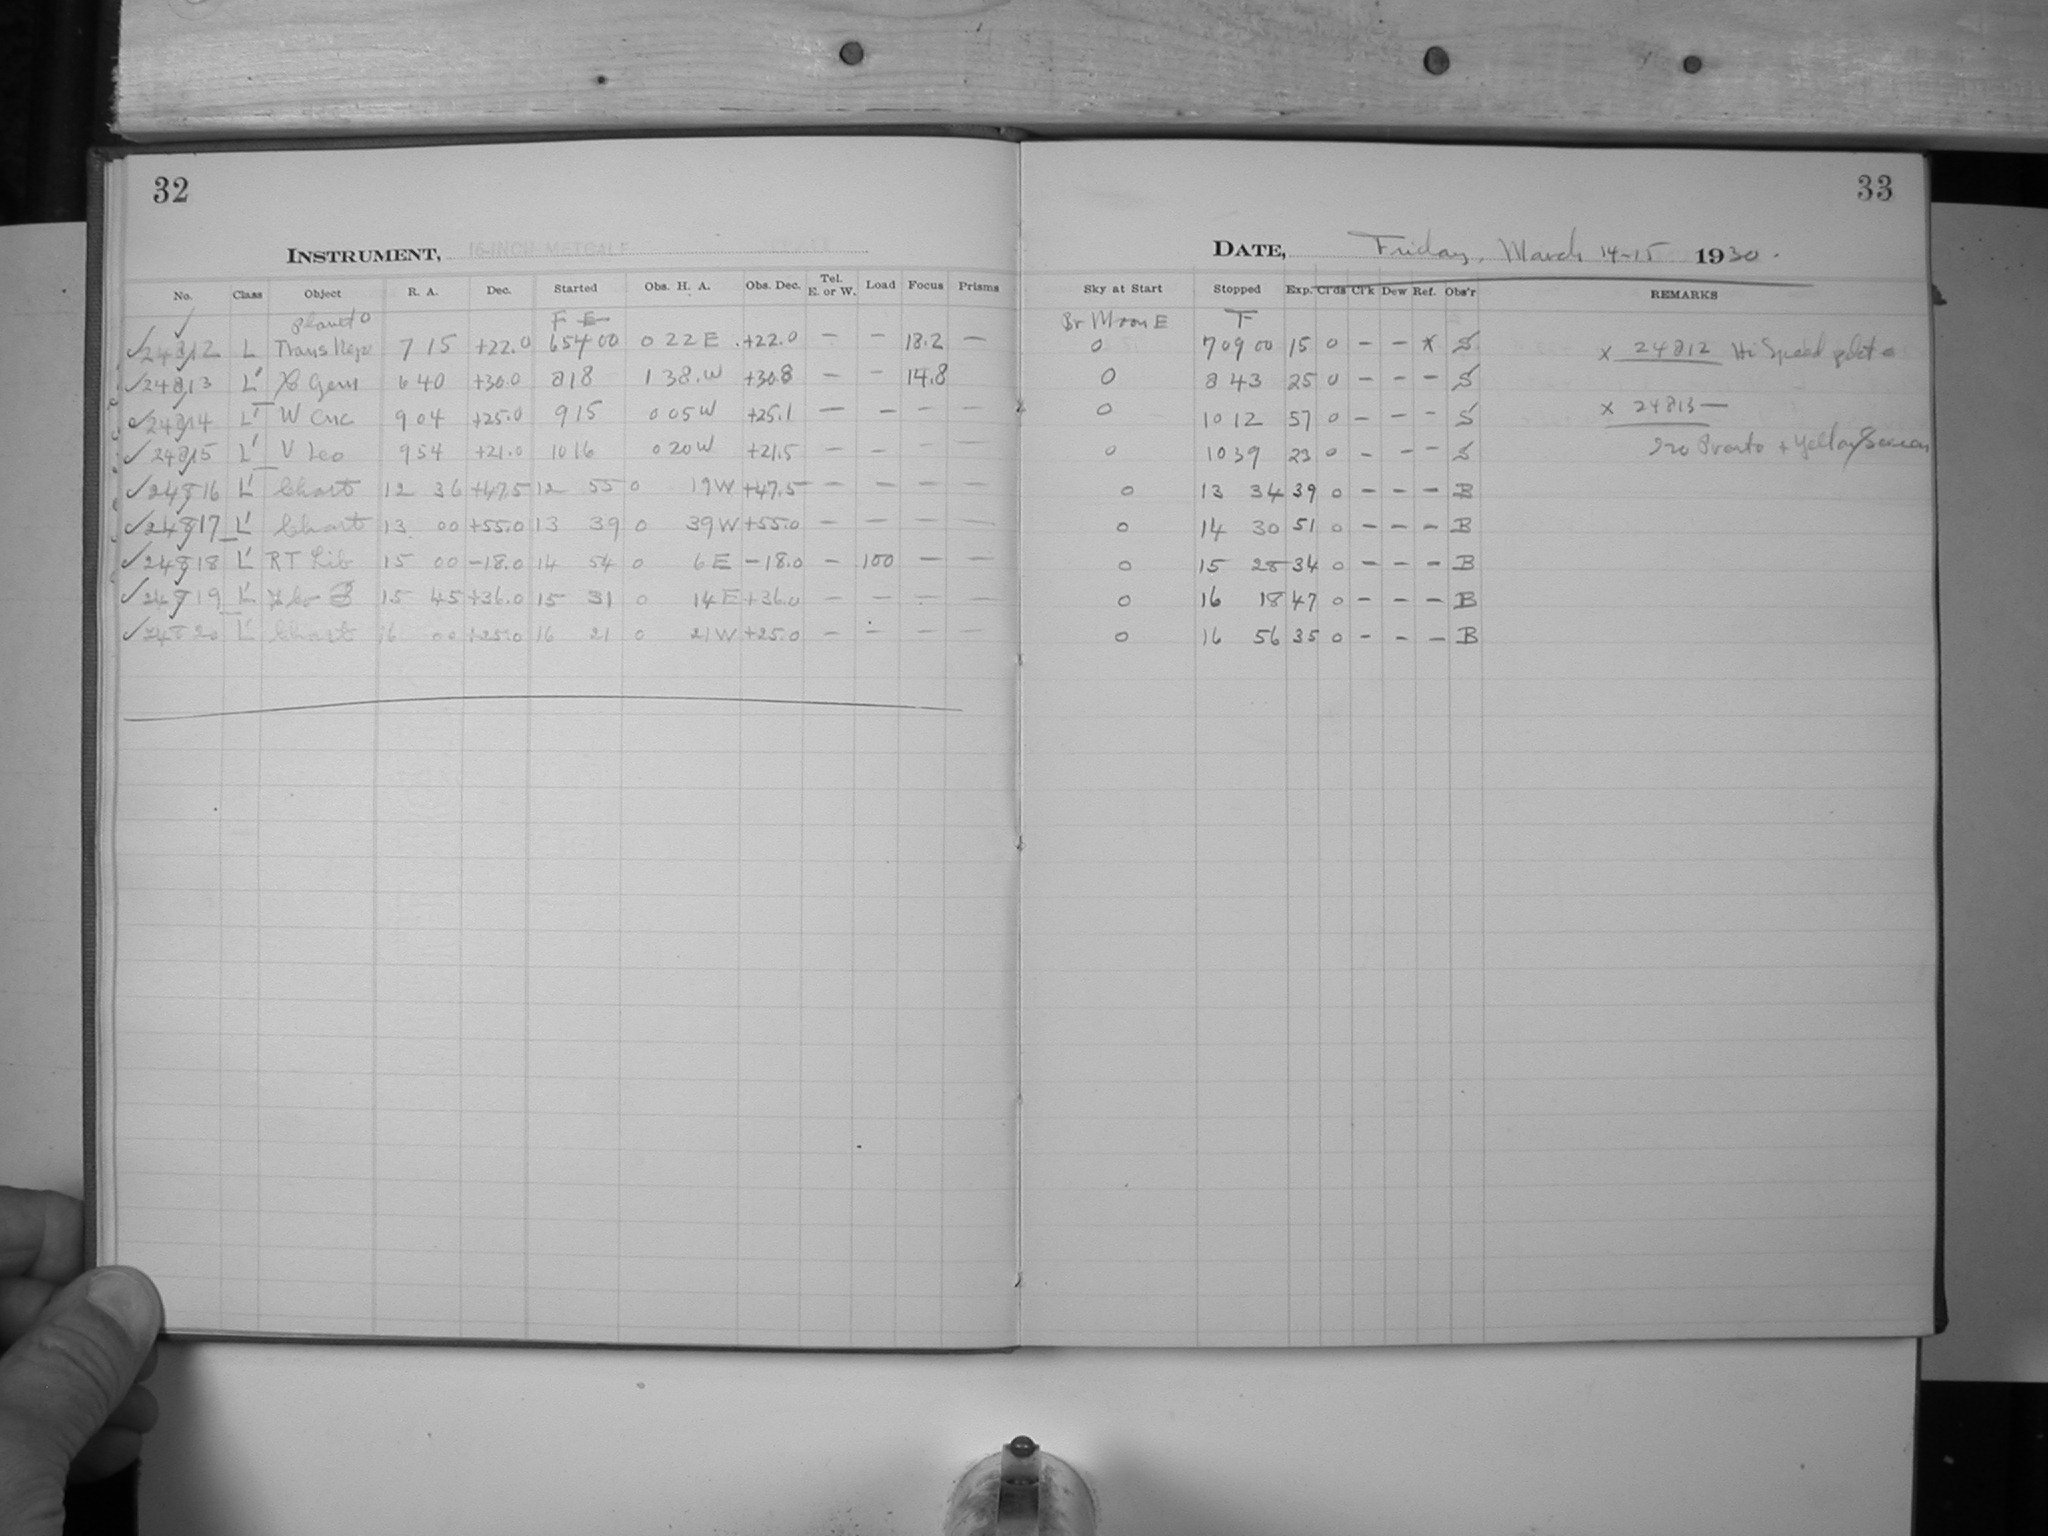 32
33
INSTRUMENT, 16-INCH METCALF
DATE, Friday, March 14-15 1930.
No. Class Object R. A. Dec. Started Obs. H. A. Obs. Dec. Tel. E. or W. Load Focus Prisms Sky at Start Stopped Exp. Cl'ds Cl'k Dew Ref. Obs'r REMARKS
Planet O F E Br Moon E T
✓ 24812 L Trans Nep 7 15 +22.0 6 54 00 0 22 E +22.0 – – 18.2 – 0 7 09 00 15 0 – – x S x 24812 Hi Speed plate
✓ 24813 L' Gem 6 40 +30.0 8 18 1 38 W +30.8 – – 14.8 0 8 43 25 0 – – – S
✓ 24814 L' W Cnc 9 04 +25.0 9 15 0 05 W +25.1 – – – – 0 10 12 57 0 – – – S x 24813 —
✓ 24815 L' V Leo 9 54 +21.0 10 16 0 20 W +21.5 – – – – 0 10 39 23 0 – – – S + Yellow Screen
✓ 24816 L' Chart 12 36 +47.5 12 55 0 19 W +47.5 – – – – 0 13 34 39 0 – – – B
✓ 24817 L' Chart 13 00 +55.0 13 39 0 39 W +55.0 – – – – 0 14 30 51 0 – – – B
✓ 24818 L' RT Lib 15 00 –18.0 14 54 0 6 E –18.0 – 100 – – 0 15 28 34 0 – – – B
✓ 24819 L' 15 45 +36.0 15 31 0 14 E +36.0 – – – – 0 16 18 47 0 – – – B
✓ 24820 L' Chart 16 00 +25.0 16 21 0 21 W +25.0 – – – – 0 16 56 35 0 – – – B